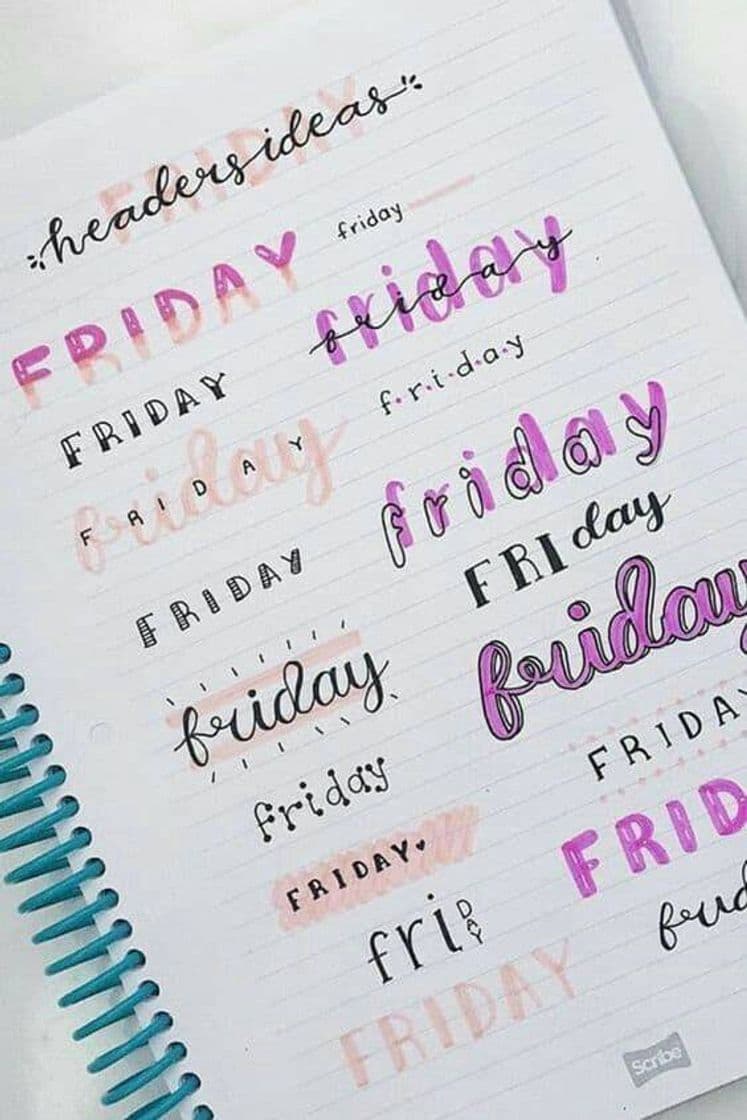 FRIDAY
headers ideas
friday
FRIDAY
friday
friday
FRIDAY
f.r.i.d.a.y
friday
FRIDAY
friday
FRIday
FRIDAY
friday
friday
FRIDAY
friday
FRIDAY♥
FRID
friDAY
frid
FRIDAY
Scribe